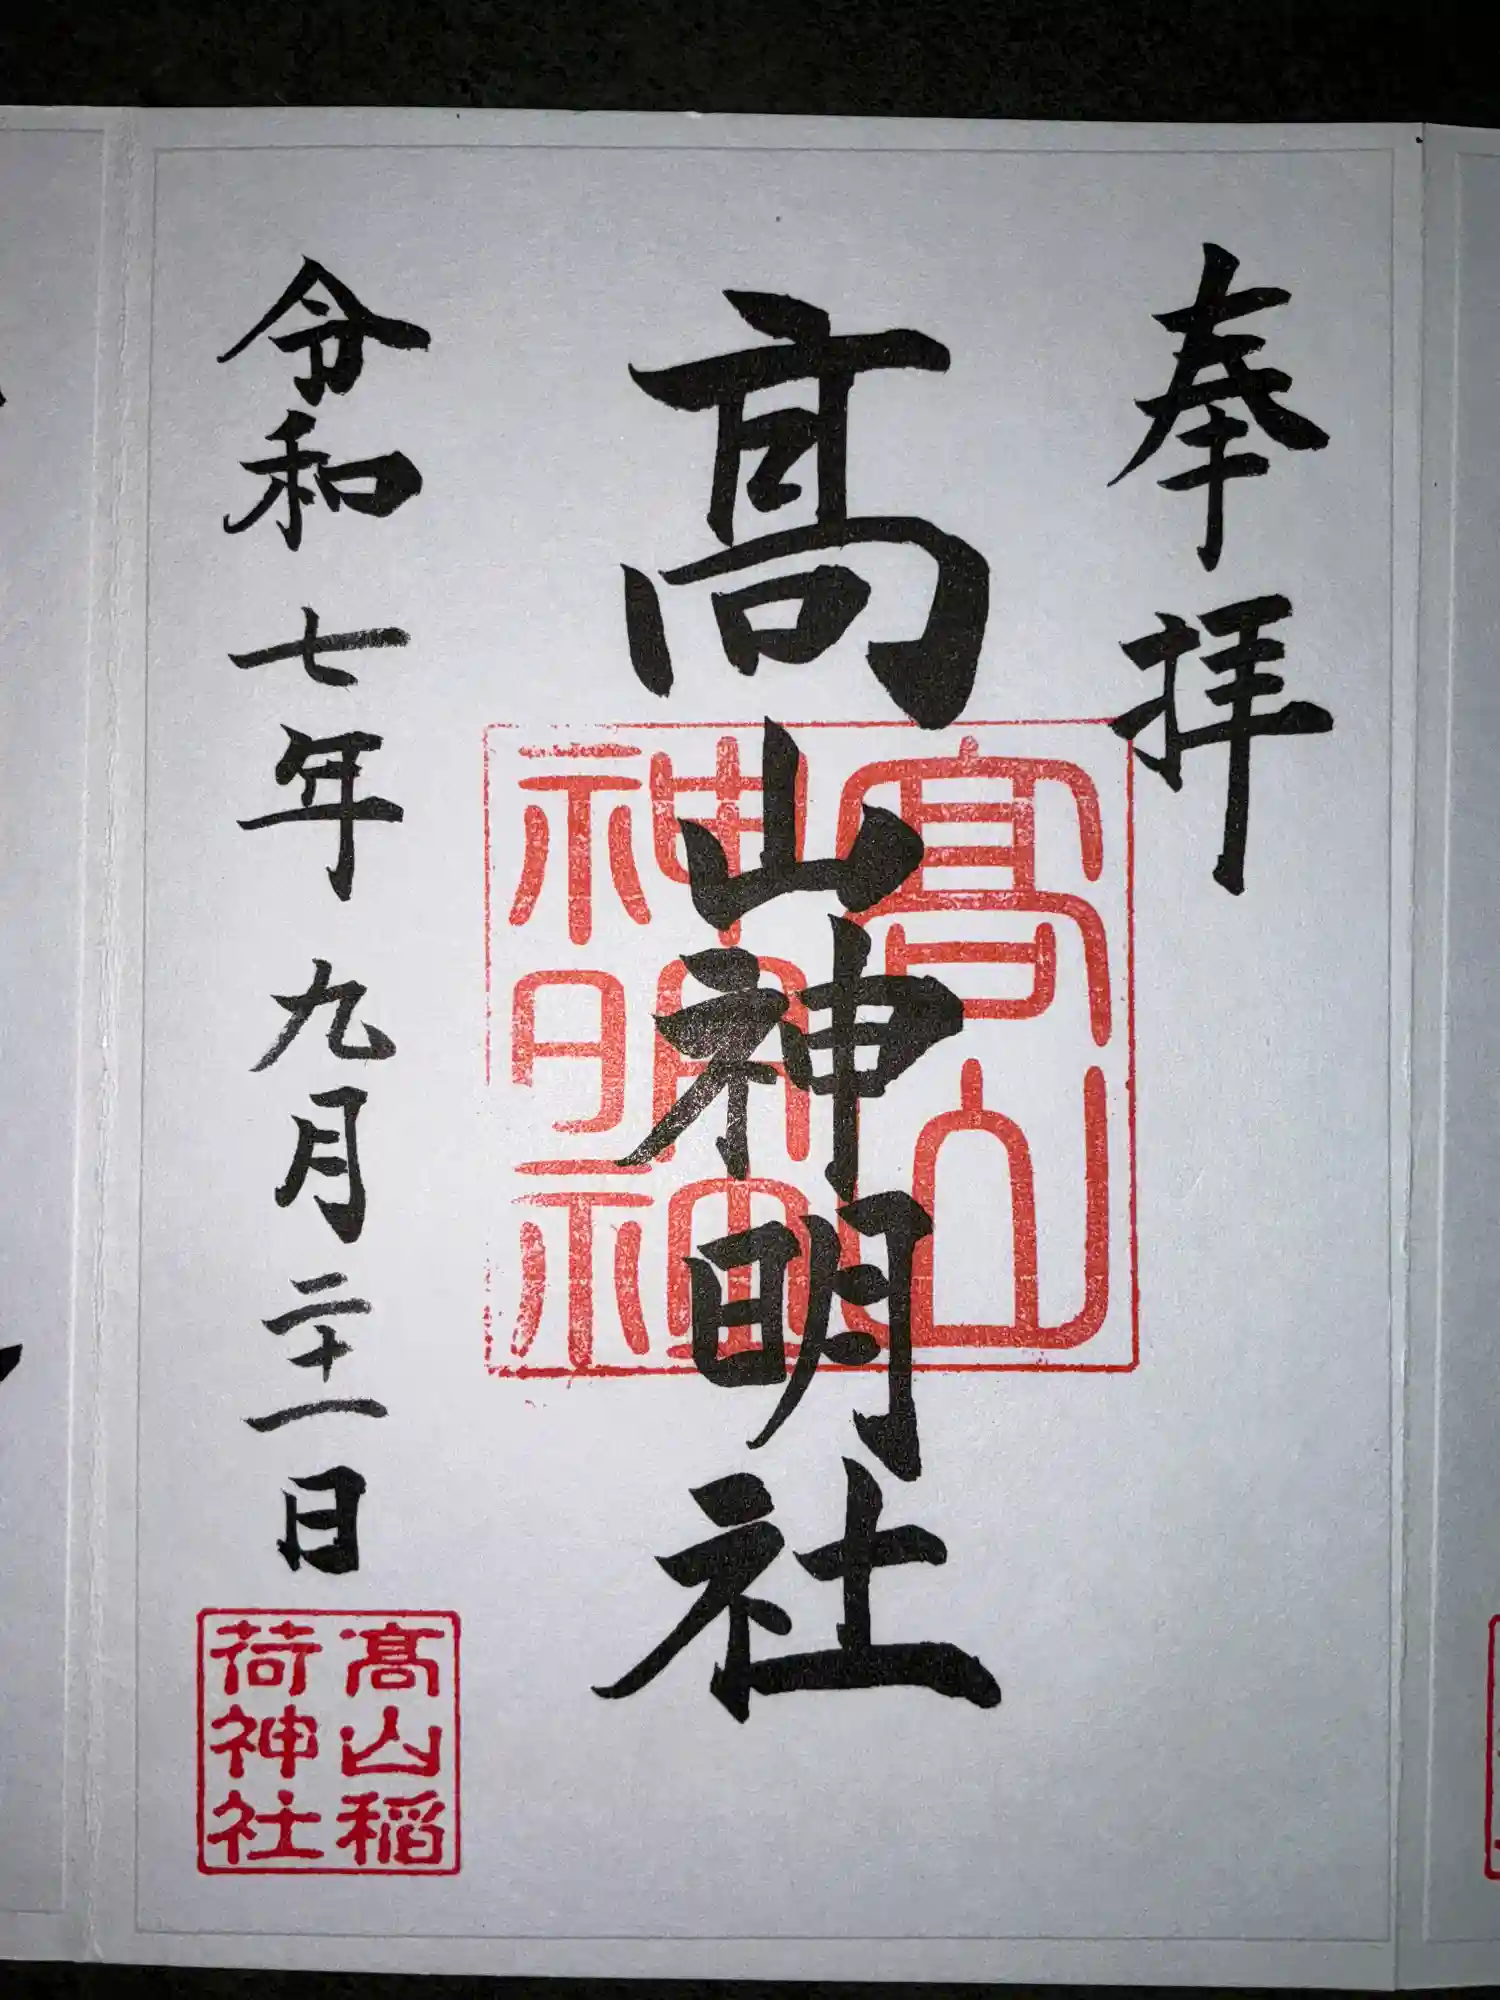 奉拝
髙山神明社
髙山
神明神社
令和七年九月二十一日
髙山稲
荷神社